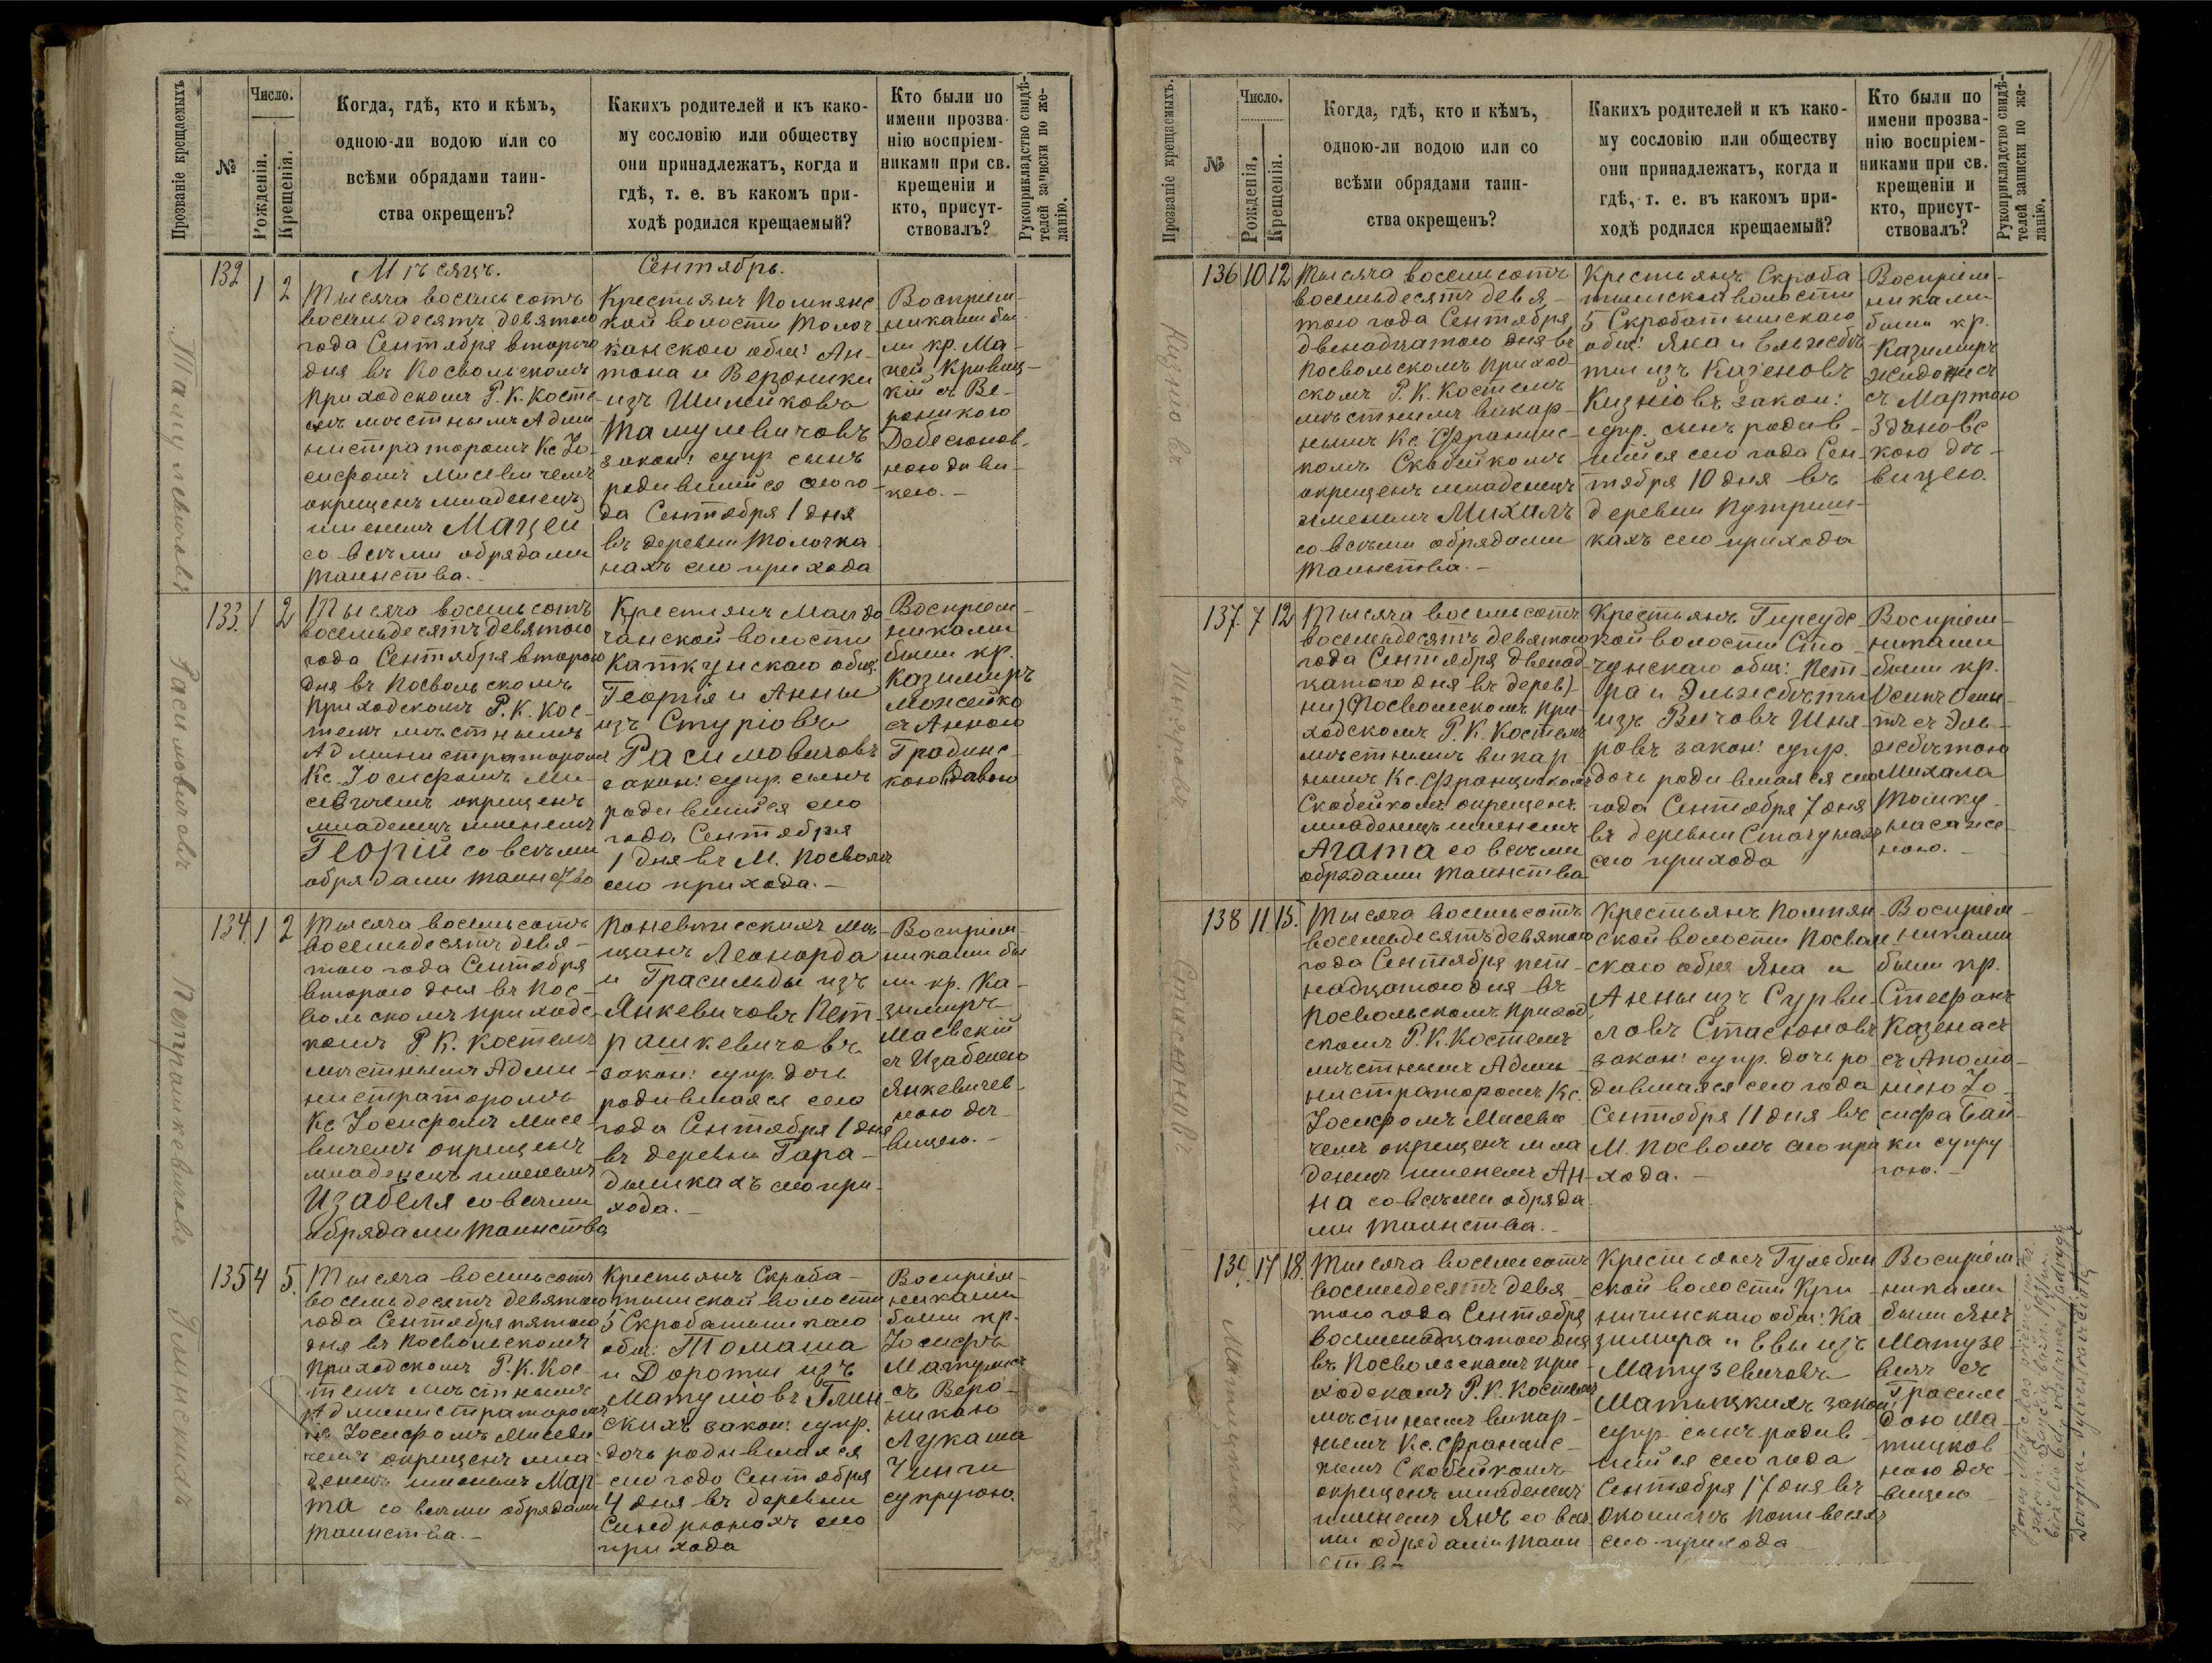 Прозваніе крещаемыхъ
№
Число.
Рожденія.
Крещенія.
Когда, гдѣ, кто и кѣмъ,
одною-ли водою или со
всѣми обрядами таин-
ства окрещенъ?
Какихъ родителей и къ како-
му сословію или обществу
они принадлежатъ, когда и
гдѣ, т. е. въ какомъ при-
ходѣ родился крещаемый?
Кто были по
имени прозва-
нію воспріем-
никами при св.
крещеніи и
кто, присут-
ствовалъ?
Рукоприкладство свидѣ-
телей записки по же-
ланію.
132
1
2
Мѣсяцъ.
Тысяча восемьсотъ
восемьдесятъ девятого
года Сентября второго
дня въ Посвольскомъ
Приходскомъ Р. К. Косте-
лѣ мѣстнымъ Адми
нистраторомъ Кс. Іо-
сифомъ Мисевичемъ
окрещенъ младенецъ
именемъ Мацей
со всѣми обрядами
таинства.-
Сентябрь.
Крестьянъ Помпянс
кой волости Толоч
канскою общ: Ан-
тона и Вероники
изъ Шимкковъ
Тамулевичовъ
закон: супр. сынъ
родившійся сего го-
да Сентября 1 дня
въ деревни Толочка
нахъ сего прихода
Воспріем-
никами бы
ли кр. Ма-
цей Кривиц-
кій съ Ве-
роникою
Дебесюнов-
ною дѣви-
цею.-
Тамулевичовъ
133.
1
2
Тысяча восемьсотъ
восемьдесятъ девятого
года Сентября второго
дня въ Посвольскомъ
Приходскомъ Р. К. Кос-
телѣ мѣстнымъ
Администраторомъ
Кс. Іосифомъ Ми-
севичемъ окрещенъ
младенецъ именемъ
Георгій со всѣми
обрядами таинство
Крестьянъ Мацдо
чанской волости
Каткунскаго общ.
Георгія и Анны
изъ Стуріовъ
Расимовичовъ
закон: супр. сынъ
родившійся сего
года Сентября
1 дня въ М. Посволѣ
сего прихода.-
Воспріем-
никами
были кр.
Казимиръ
Можейко
съ Анною
Градинс-
кою вдовою
Расимовичовъ
134.
1
2
Тысяча восемьсотъ
восемьдесятъ девя-
того года Сентября
второго дня въ Пос-
вольскомъ приходс-
комъ Р. К. Костелѣ
мѣстнымъ Адми-
нистраторомъ
Кс. Іосифомъ Мисе-
вичемъ окрещенъ
младенецъ именемъ
Изабеля со всѣми
обрядами таинства
Поневѣжскихъ мѣ-
щанъ Леонарда
и Грасильды изъ
Янкевичовъ Пет-
рашкевичовъ
закон: супр. дочь
родившаяся сего
года Сентября 1 дня
въ деревни Гара-
дышкахъ сего при-
хода.-
Воспріем-
никами бы
ли кр. Ка-
зимиръ
Маевскій
съ Изабелею
Янкевичев-
ною дѣ-
вицею.-
Петрашкевичовъ
135
4
5.
Тысяча восемьсотъ
восемьдесятъ девятого
года Сентября пятого
дня въ Посвольскомъ
Приходскомъ Р. К. Кос-
телѣ мѣстнымъ
Администраторомъ
Кс. Іосифомъ Мисеви
чемъ окрещенъ мла
денецъ именемъ Мар-
та со всѣми обрядами
таинства.-
Крестьянъ Скроба-
тышской волости
5 Скробатышскаго
общ: Томаша
и Дороты изъ
Матуліовъ Глин-
скихъ закон: супр.
дочь родившаяся
сего года Сентября
4 дня въ деревни
Синдрюнахъ сего
прихода
Воспріем-
никами
были кр.
Іосифъ
Матулисъ
съ Веро-
никою
Лукаша
супругою.
136
10
12
Тысяча восемьсотъ
восемьдесятъ девя-
того года Сентября
двенадцатого дня въ
Посвольскомъ Приход-
скомъ Р. К. Костелѣ
мѣстнымъ викар-
нымъ Кс. Францис-
комъ Скабейкомъ
окрещенъ младенецъ
именемъ Михалъ
со всѣми обрядами
таинства.-
Крестьянъ Скроба
тышской волости
5 Скробатышскаго
общ: Яна и Ельжебѣ-
ты изъ Казеновъ
Кузніовъ закон:
супр. сынъ родив-
шійся сего года Сен-
тября 10 дня въ
деревни Путриш-
кахъ сего прихода
Воспріем-
никами
были кр.
Казимиръ
Жидонисъ
съ Мартою
Здановс
кою дѣ-
вицею.
137.
7
12
Тысяча восемьсотъ
восемьдесятъ девятого
года Сентября двенад-
цатого дня въ дерев)
ни) Посвольскомъ При-
ходскомъ Р. К. Костелѣ
мѣстнымъ викар-
нымъ Кс. Францискомъ
Скабейкомъ окрещенъ
младенецъ именемъ
Агата со всѣми
обрядами таинства
Крестьянъ Гирсудс
кой волости Сто-
чунскаго общ: Пет-
ра и Эльжебѣты
изъ Вичовъ Шня-
ровъ закон: супр.
дочь родившаяся сего
года Сентября 7 дня
въ деревни Стачунахъ
сего прихода
Воспріем-
никами
были кр.
съ Эль-
жебѣтою
Михала
138
11
15.
Тысяча восемьсотъ
восемьдесятъ девятого
года Сентября пят-
надцатого дня въ
Посвольскомъ Приход
скомъ Р. К. Костелѣ
мѣстнымъ Адми-
нистраторомъ Кс.
Іосифомъ Мисеви
чемъ окрещенъ мла
денецъ именемъ Ан-
на со всѣми обряда
ми таинства.-
Крестьянъ Помпян-
ской волости Посволь
скаго общ Яна и
Анны изъ Сурви-
ловъ Стасюновъ
закон: супр. дочь ро
дившаяся сего года
Сентября 11 дня въ
М. Посволѣ сего при
хода.-
Воспріем-
никами
были кр.
Стефанъ
Казенасъ
съ Аполо-
ніею Іо-
сифа Бай-
ки супру
гою.-
Стасюновъ
139.
17
18.
Тысяча восемьсотъ
восемьдесятъ девя-
того года Сентября
восемнадцатого дня
въ Посвольскомъ При-
ходскомъ Р. К. Костелѣ
мѣстнымъ викар-
нымъ Кс. Францис-
комъ Скабейкомъ
окрещенъ младенецъ
именемъ Янъ со всѣ
ми обрядами таин
Крестьянъ Гулбин
ской волости Кри
ничинскаго общ: Ка
зимира и Евы изъ
Матузевичовъ
Матыцкихъ закон:
супр. сынъ родив-
шійся сего года
Сентября 17 дня въ
околицѣ Попивесяхъ
сего прихода
Воспріем-
никами
были Янъ
Матузе
вичъ съ
Грасиль
дою Ма-
тицков
ною дѣ-
вицею